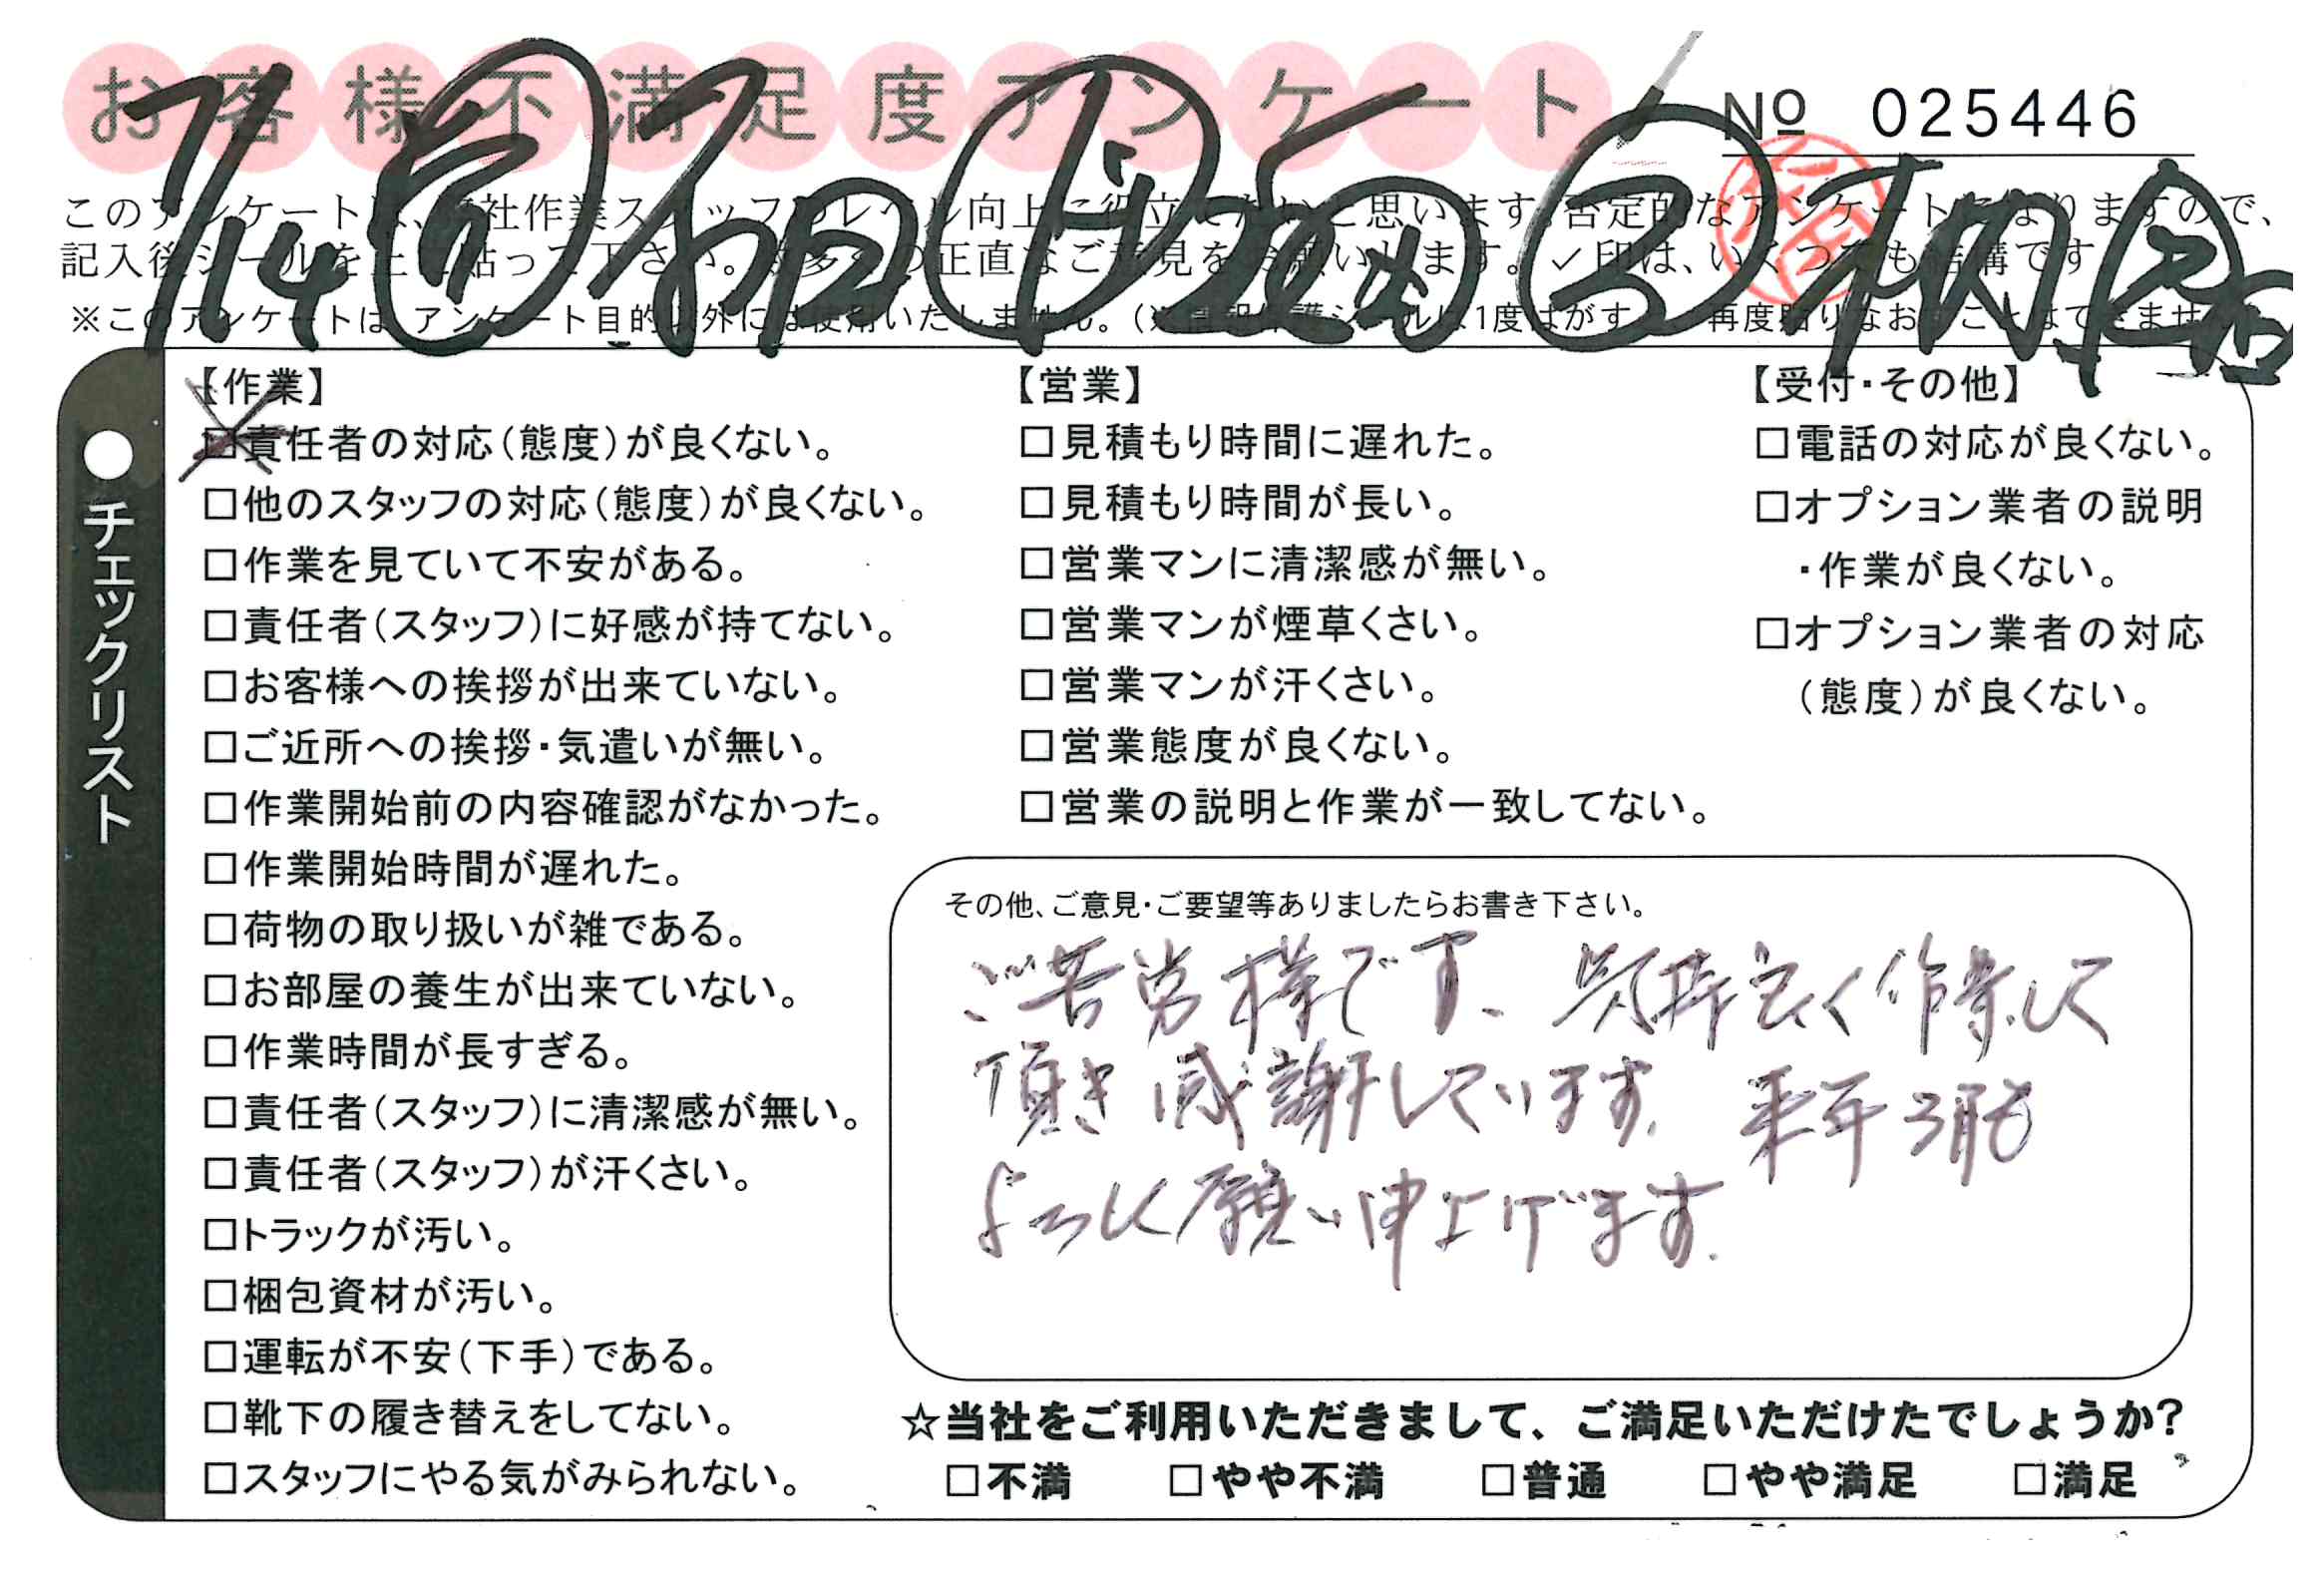 お客様不満足度アンケート
№ 025446
7/14
このアンケートは、当社作業スタッフのレベル向上に役立てたいと思います。否定的なアンケートになりますので、
記入後シールを上に貼って下さい。数多くの正直なご意見をお願いします。✓印は、いくつでも結構です
※このアンケートは、アンケート目的以外には使用いたしません。(※情報保護シールは1度はがすと、再度貼りなおすことはできません
●チェックリスト
【作業】
□責任者の対応(態度)が良くない。
□他のスタッフの対応(態度)が良くない。
□作業を見ていて不安がある。
□責任者(スタッフ)に好感が持てない。
□お客様への挨拶が出来ていない。
□ご近所への挨拶・気遣いが無い。
□作業開始前の内容確認がなかった。
□作業開始時間が遅れた。
□荷物の取り扱いが雑である。
□お部屋の養生が出来ていない。
□作業時間が長すぎる。
□責任者(スタッフ)に清潔感が無い。
□責任者(スタッフ)が汗くさい。
□トラックが汚い。
□梱包資材が汚い。
□運転が不安(下手)である。
□靴下の履き替えをしてない。
□スタッフにやる気がみられない。
【営業】
□見積もり時間に遅れた。
□見積もり時間が長い。
□営業マンに清潔感が無い。
□営業マンが煙草くさい。
□営業マンが汗くさい。
□営業態度が良くない。
□営業の説明と作業が一致してない。
【受付・その他】
□電話の対応が良くない。
□オプション業者の説明
・作業が良くない。
□オプション業者の対応
(態度)が良くない。
その他、ご意見・ご要望等ありましたらお書き下さい。
ご苦労様です、気持良く作業して
頂き感謝しています。来年3月も
よろしく願い申上げます。
☆当社をご利用いただきまして、ご満足いただけたでしょうか?
□不満 □やや不満 □普通 □やや満足 □満足